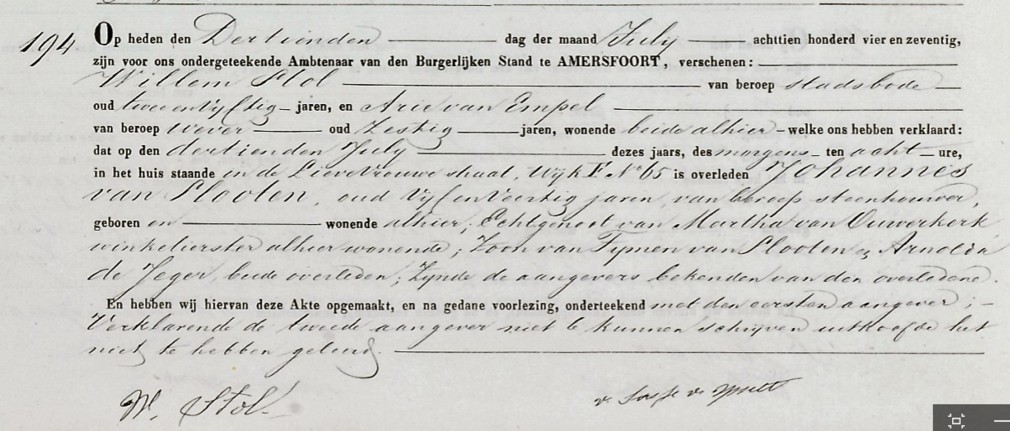 194
Op heden den Dertienden dag der maand July achttien honderd vier en zeventig,
zijn voor ons ondergeteekende Ambtenaar van den Burgerlijken Stand te AMERSFOORT, verschenen:
Willem Stol van beroep stadsbode
oud twee en vijftig jaren, en Arie van Empel
van beroep Wever oud Zestig jaren, wonende beide alhier welke ons hebben verklaard:
dat op den dertienden July dezes jaars, des morgens ten acht ure,
in het huis staande in de Lievevrouwe straat, Wijk F No 65 is overleden Johannes
van Slooten, oud Vijf en Veertig jaren, van beroep steenhouwer,
geboren en wonende alhier; Echtgenoot van Martha van Ouwerkerk
winkelierster alhier wonende; Zoon van Tymen van Slooten & Arnolda
de Jeger, beide overleden; Zynde de aangevers bekenden van den overledene.
En hebben wij hiervan deze Akte opgemaakt, en na gedane voorlezing, onderteekend met den eersten aangever;
Verklarende de tweede aangever niet te kunnen schrijven uit hoofde het
niet te hebben geleerd.
W. Stol